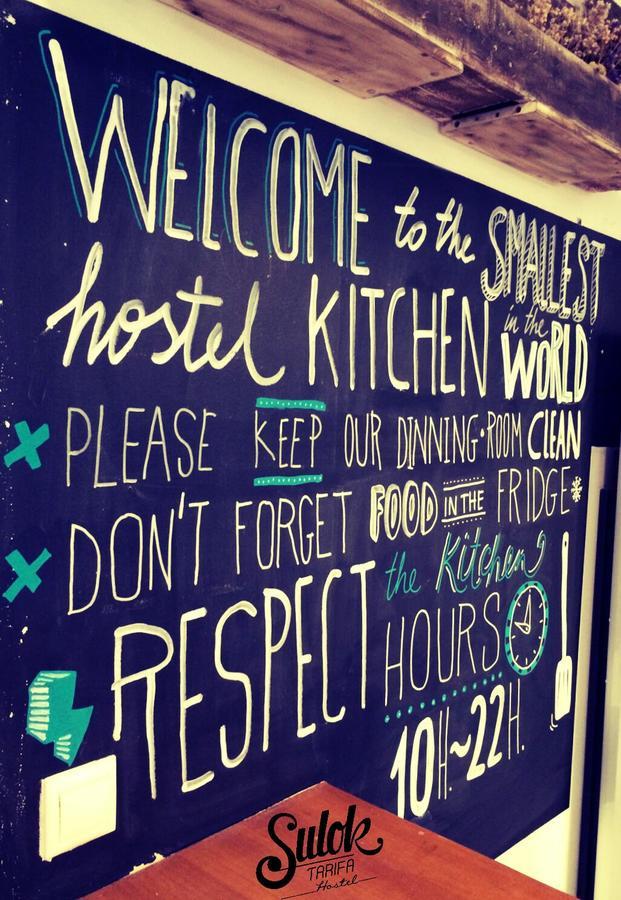 WELCOME to the SMALLEST
hostel KITCHEN in the WORLD
PLEASE KEEP OUR DINNING-ROOM CLEAN
DON'T FORGET FOOD IN THE FRIDGE
RESPECT the Kitchen
HOURS
10H.~22H.
Sulok
TARIFA
Hostel